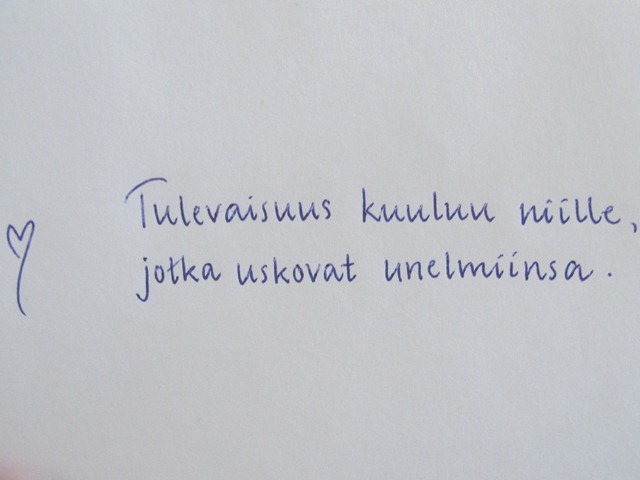 Tulevaisuus kuuluu niille,
jotka uskovat unelmiinsa.